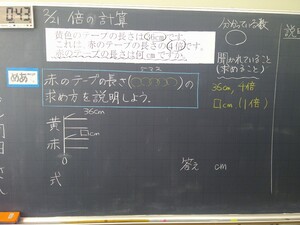 043
2/21 倍の計算
黄色のテープの長さは36cmです。
これは、赤のテープの長さの4倍です。
赤のテープの長さは何cmですか。
分かっている数
聞かれていること
(求めること)
36cm, 4倍
□cm (1倍)
めあて
赤のテープの長さ(
)の
求め方を説明しよう。
36cm
黄
□cm
赤
0
式
答え cm